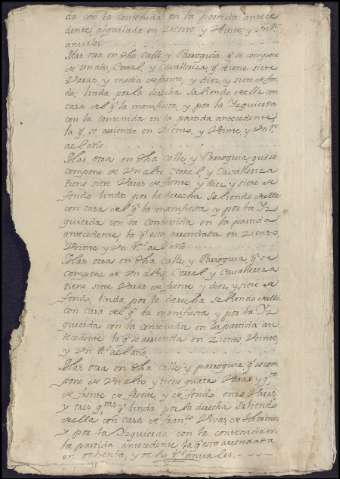 da con la contenida en la partida antece
dente, aquilada en Ziento y Veinte, y Un Rs.
anuales
Mas otra en dha Calle, y Parroquia, q.e se compone
de Un Alto, Corral, y Cavalleriza, q.e tiene siete
Varas, y media de frente, y diez, y siete de fon
do, linda por la derecha saliendo de ella con
casa del q.e la manifiesta, y por la Yzquierda
con la contenida en la partida antecedente
la q.e se arrienda en Ziento, y Veinte, y Un Rs.
al año
Mas otra en dha Calle, y Parroquia, que se
compone de Un Alto, Corral, y Cavalleriza
tiene siete Varas de frente, y diez, y siete de
fondo, linda por la derecha saliendo de ella
con casa del q.e la manifiesta, y por la Yz
quierda con la Contenida en la partida
antecedente la q.e esta arrendada en Ziento
Veinte, y Un Rs. al año
Mas otra en dha Calle, y Parroquia, q.e se
compone de Un Alto, Corral, y Cavalleriza
tiene siete Varas de frente, y diez, y siete de
fondo, linda por la derecha saliendo de ella
con casa del q.e la manifiesta, y por la Yz
quierda con la Contenida en la partida an
tecedente la q.e se arrienda en Ziento Veinte,
y Un Rs. al año
Mas otra en dha Calle, y parroquia q.e se com
pone de Un Alto, y tiene quatro Varas, y
de frente, y de fondo onze Varas,
y tres q.tas linda por la derecha saliendo
de ella con casa de
y por la Yzquierda con la contenida en
la partida antecedente la q.e esta arrendada
en ochenta, y Rs. anuales